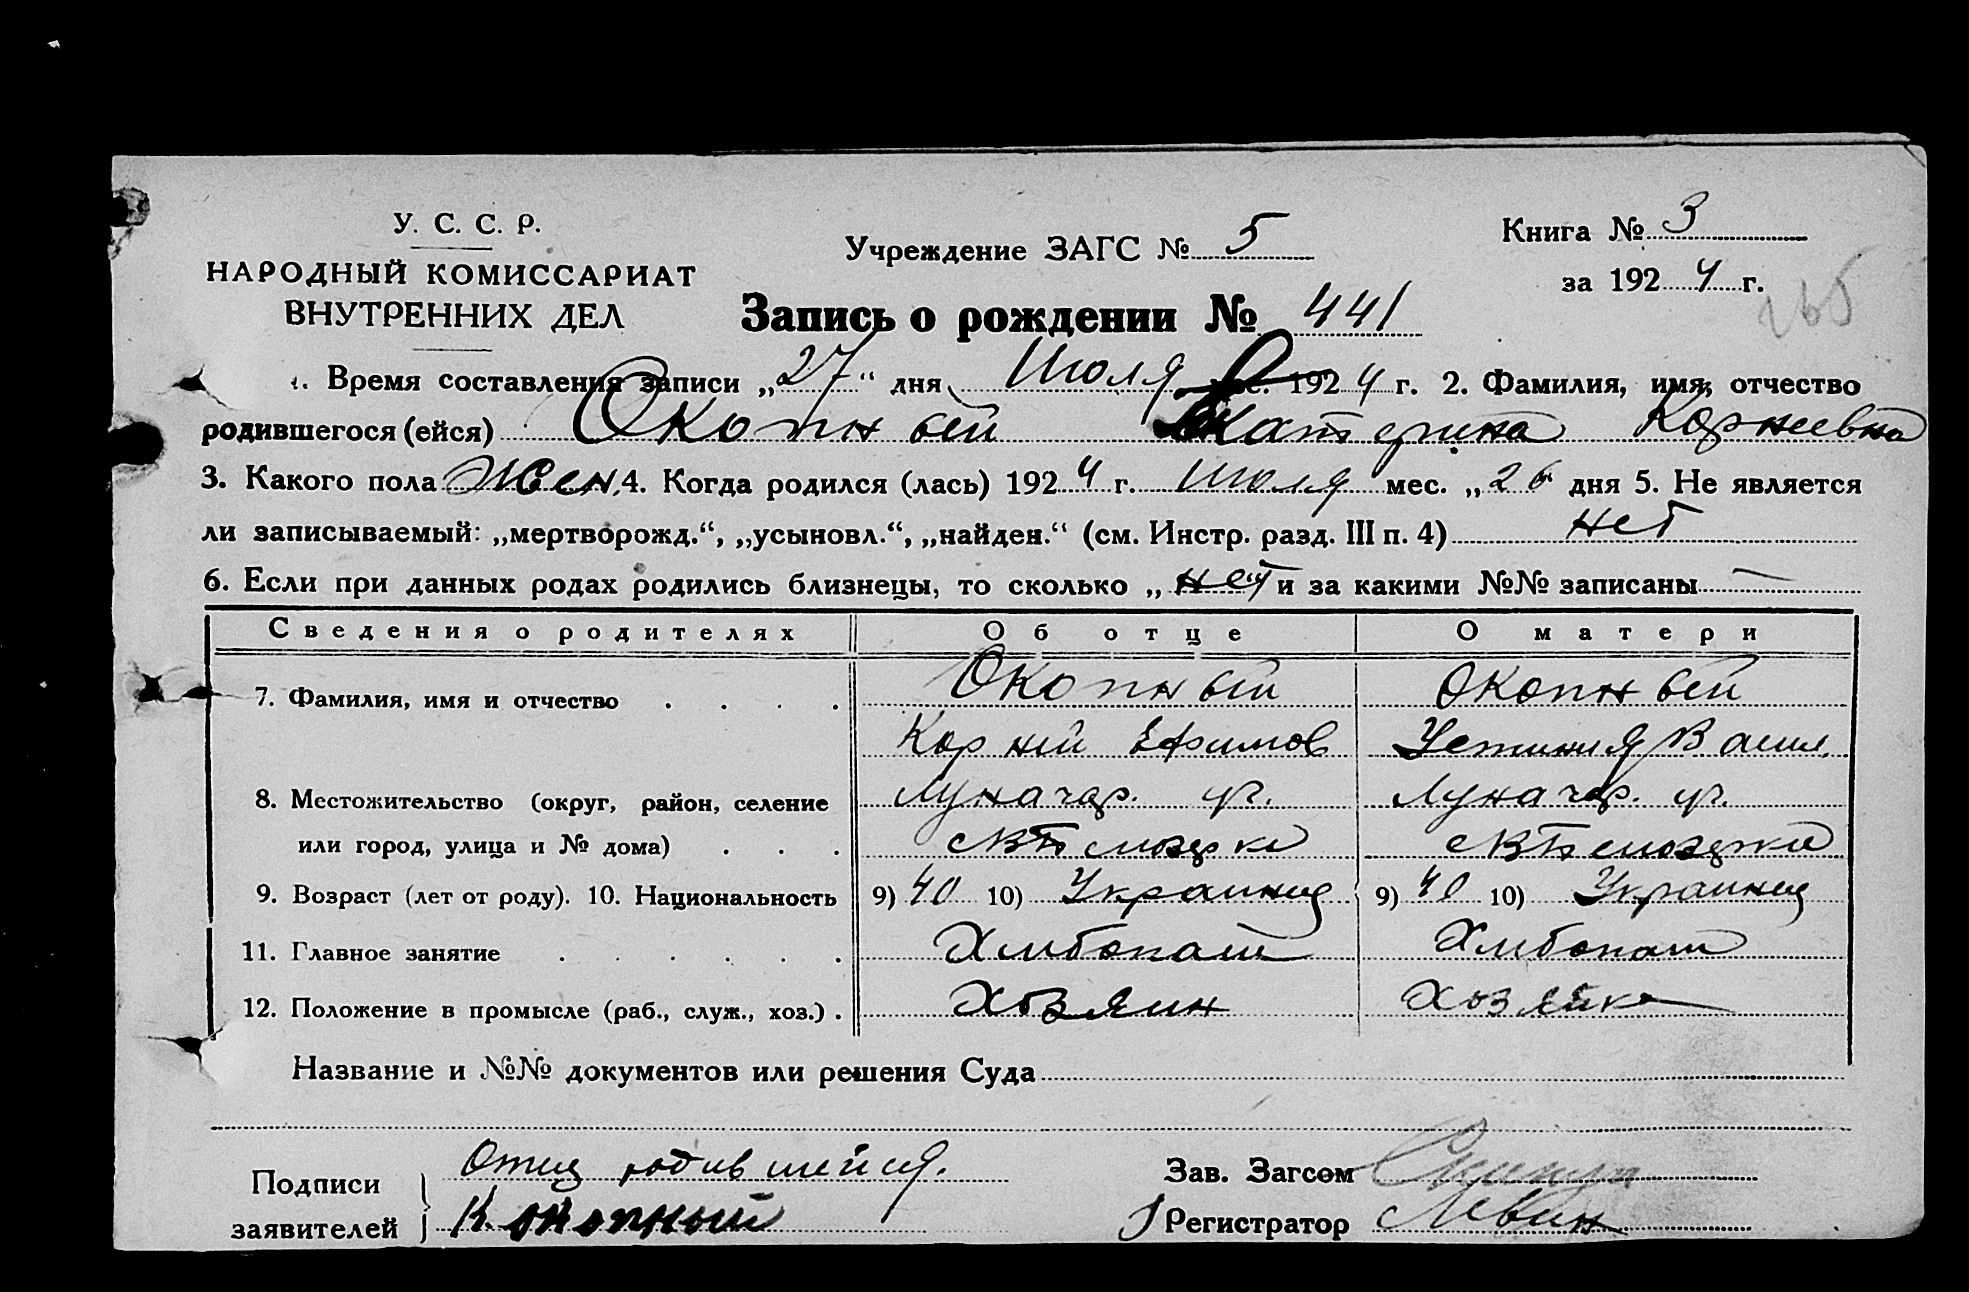 У. С. С. Р.
НАРОДНЫЙ КОМИССАРИАТ
ВНУТРЕННИХ ДЕЛ
Учреждение ЗАГС № 5
Книга № 3
за 1924 г.
Запись о рождении № 441
1. Время составления записи „27“ дня Июля мес. 1924 г. 2. Фамилия, имя, отчество
родившегося (ейся) Окопный Екатерина Корнеевна
3. Какого пола Жен. 4. Когда родился (лась) 1924 г. Июля мес. „26 дня 5. Не является
ли записываемый: „мертворожд.“, „усыновл.“, „найден.“ (см. Инстр. разд. III п. 4) нет
6. Если при данных родах родились близнецы, то сколько „нет и за какими №№ записаны —
Сведения о родителях Об отце О матери
7. Фамилия, имя и отчество . . . . Окопный Окопный
Корний Ефимов Устиния Васил.
8. Местожительство (округ, район, селение Луначар. ул. Луначар. ул.
или город, улица и № дома) . . .
9. Возраст (лет от роду). 10. Национальность 9) 40 10) Украинец 9) 40 10) Украинец
11. Главное занятие . . . . . . Хлибопаш Хлибопаш
12. Положение в промысле (раб., служ., хоз.) . Хозяин Хозяйка
Название и №№ документов или решения Суда
Подписи заявителей
Отец родившейся.
К. Окопный
Зав. Загсом
Регистратор Левин